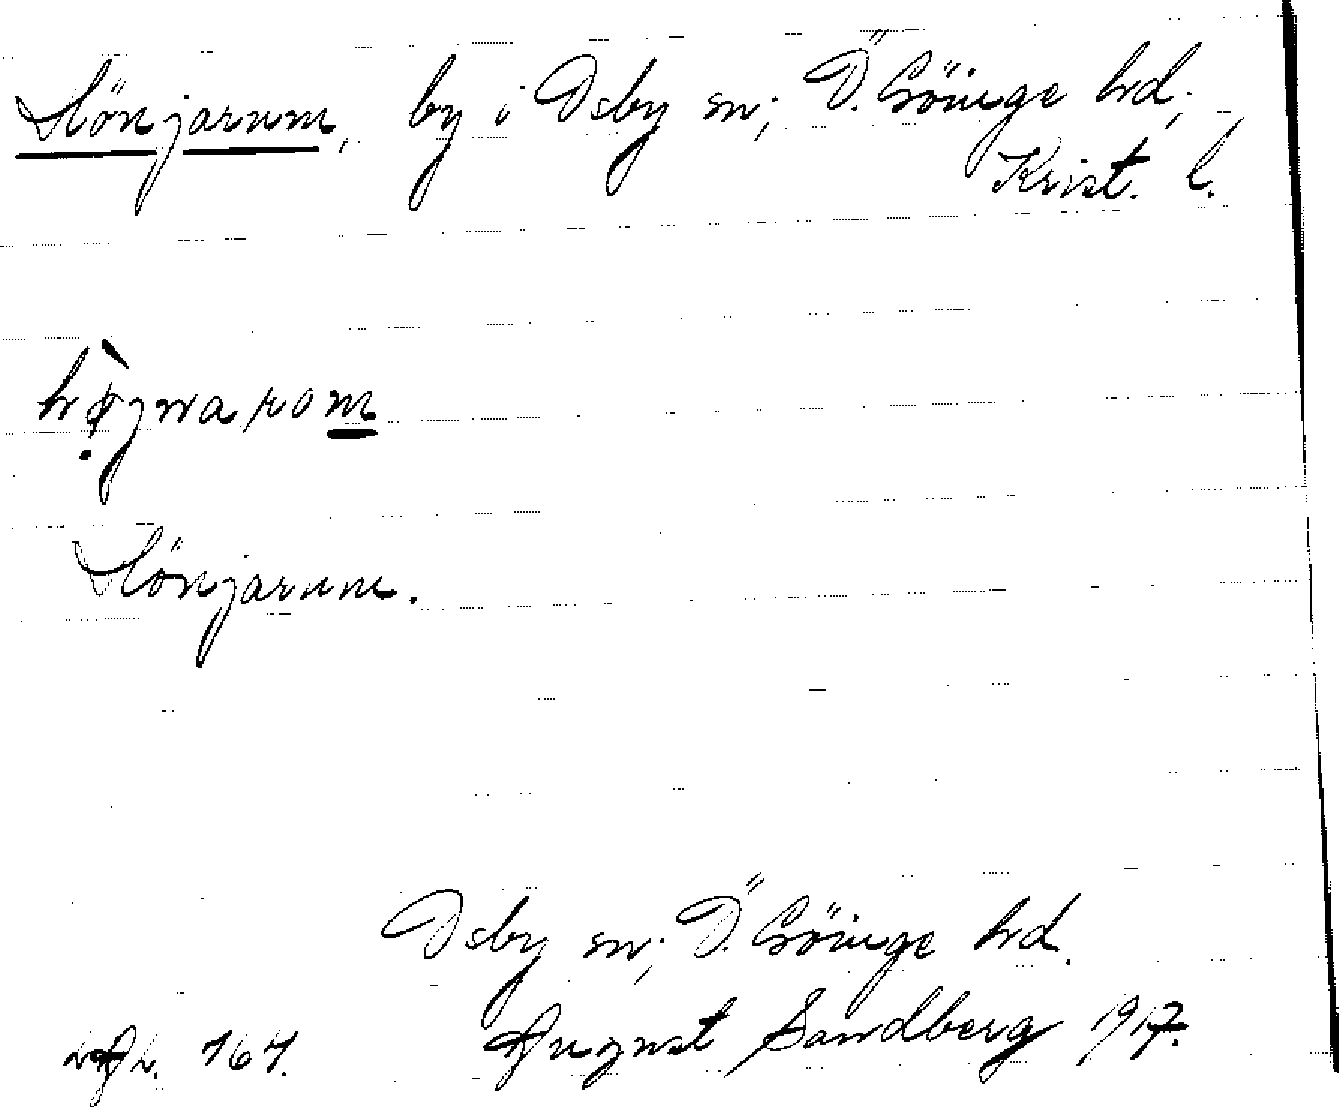 Hönjarum, by i Osby sn; Ö. Göinge hd,
Krist. l.
Hönjarum.
Osby sn; Ö. Göinge hd.
August Sandberg 1917.